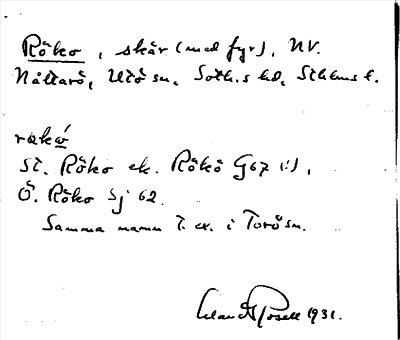 Röko, skär (med fyr), NV.
Nåttarö, Utö sn, Soth.s hd, Sthlms l.
rø̀kó
St. Röko ek. Rökö G67 (!),
Ö. Röko Sj 62.
Samma namn t. ex. i Torö sn.
Rosell 1931.